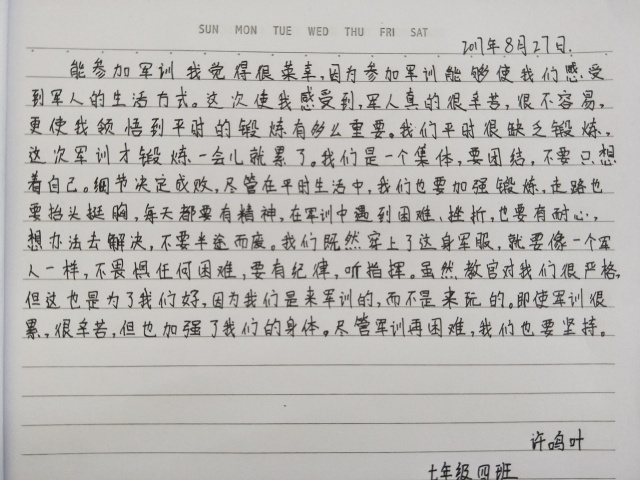 SUN MON TUE WED THU FRI SAT
2017年8月27日.
能参加军训我觉得很荣幸,因为参加军训能够使我们感受
到军人的生活方式。这次使我感受到,军人真的很辛苦,很不容易,
更使我领悟到平时的锻炼有多么重要。我们平时很缺乏锻炼,
这次军训才锻炼一会儿就累了。我们是一个集体,要团结,不要只想
着自己。细节决定成败,尽管在平时生活中,我们也要加强锻炼,走路也
要抬头挺胸,每天都要有精神,在军训中遇到困难、挫折,也要有耐心,
想办法去解决,不要半途而废。我们既然穿上了这身军服,就要像一个军
人一样,不畏惧任何困难,要有纪律,听指挥。虽然教官对我们很严格,
但这也是为了我们好,因为我们是来军训的,而不是来玩的。即使军训很
累,很辛苦,但也加强了我们的身体。尽管军训再困难,我们也要坚持。
许鸣叶
七年级四班